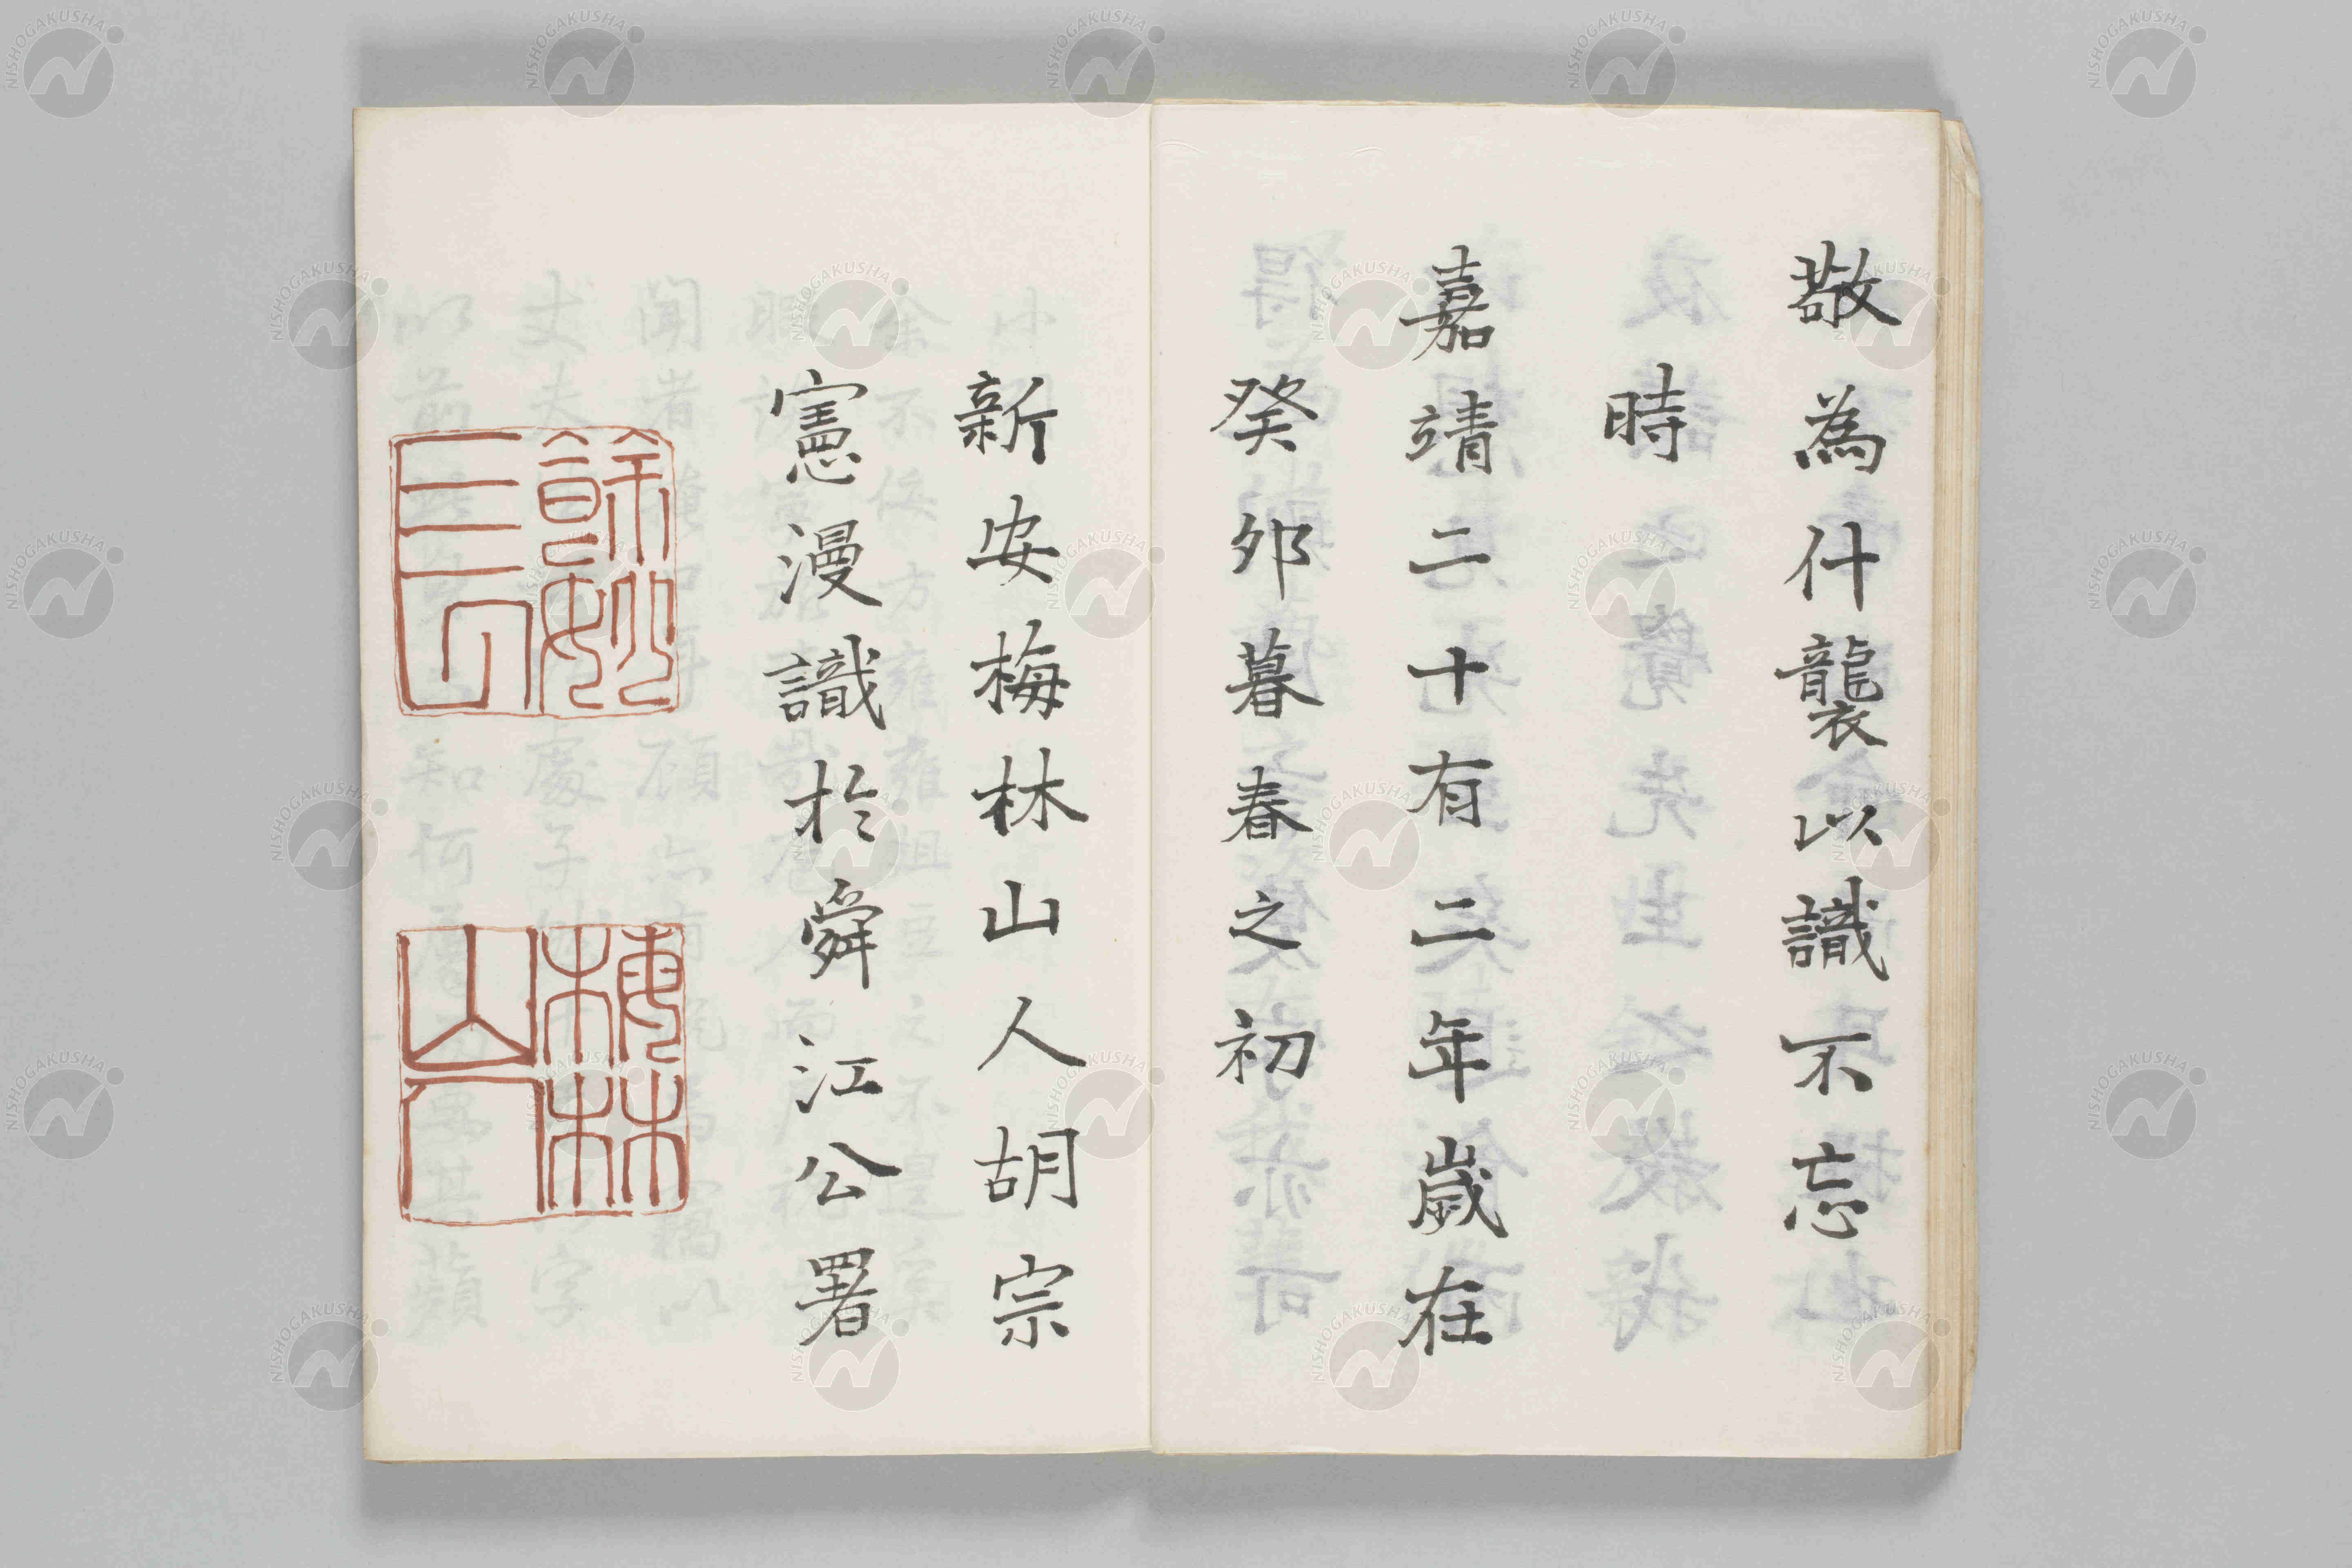 敬為什襲以識不忘
時
嘉靖二十有二年歲在
癸夘暮春之初
新安梅林山人胡宗
憲漫識於舜江公署
梅林
山人
NISHOGAKUSHA